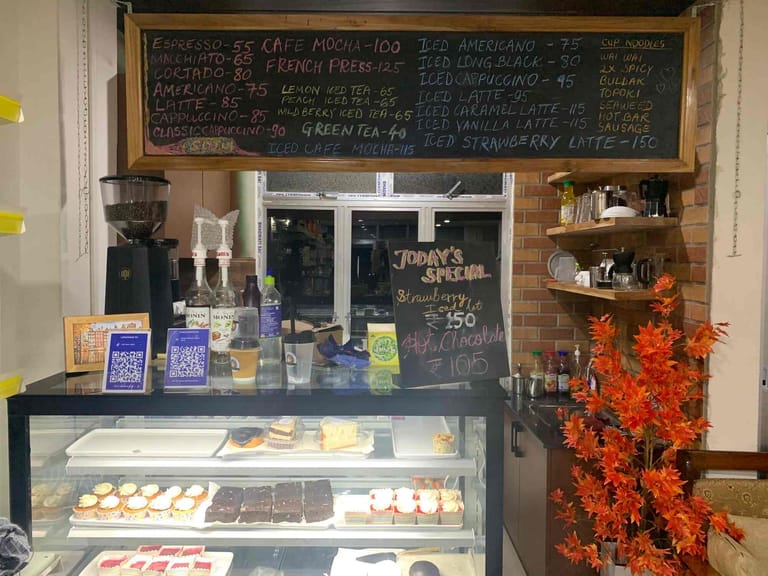 ESPRESSO-55
MACCHIATO-65
CORTADO-80
AMERICANO-75
LATTE-85
CAPPUCCINO-85
CLASSIC CAPPUCCINO-90
CAFE MOCHA-100
FRENCH PRESS-125
LEMON ICED TEA-65
PEACH ICED TEA-65
WILDBERRY ICED TEA-65
GREEN TEA-40
ICED CAFE MOCHA-115
ICED AMERICANO-75
ICED LONG BLACK-80
ICED CAPPUCCINO-95
ICED LATTE-95
ICED CARAMEL LATTE-115
ICED VANILLA LATTE-115
ICED STRAWBERRY LATTE-150
CUP NOODLES
WAI WAI
2X SPICY
BULDAK
TOPOKI
SEAWEED
HOT BAR
SAUSAGE
TODAY'S
SPECIAL
Strawberry
₹150
Hot Chocolate
₹ 105
MONIN
MONIN